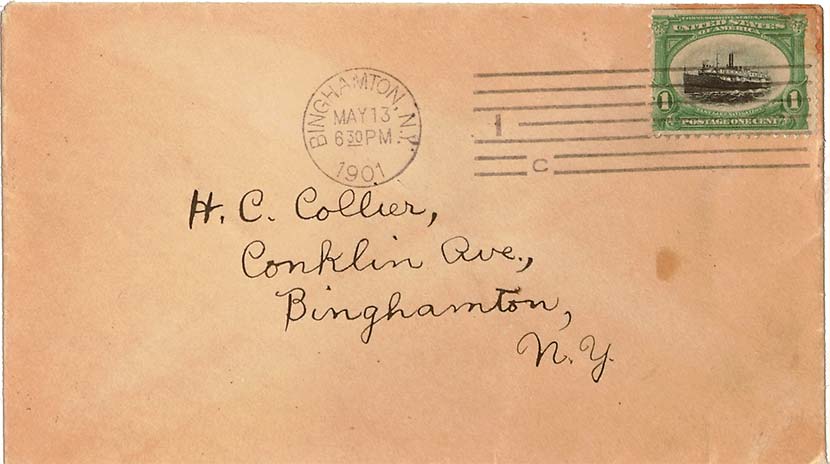 COMMEMORATIVE SERIES, 1901
UNITED STATES
OF AMERICA
1 1
POSTAGE ONE CENT
BINGHAMTON, N.Y.
MAY 13
6 30 PM.
1901
1
C
H. C. Collier,
Conklin Ave.,
Binghamton,
N.Y.